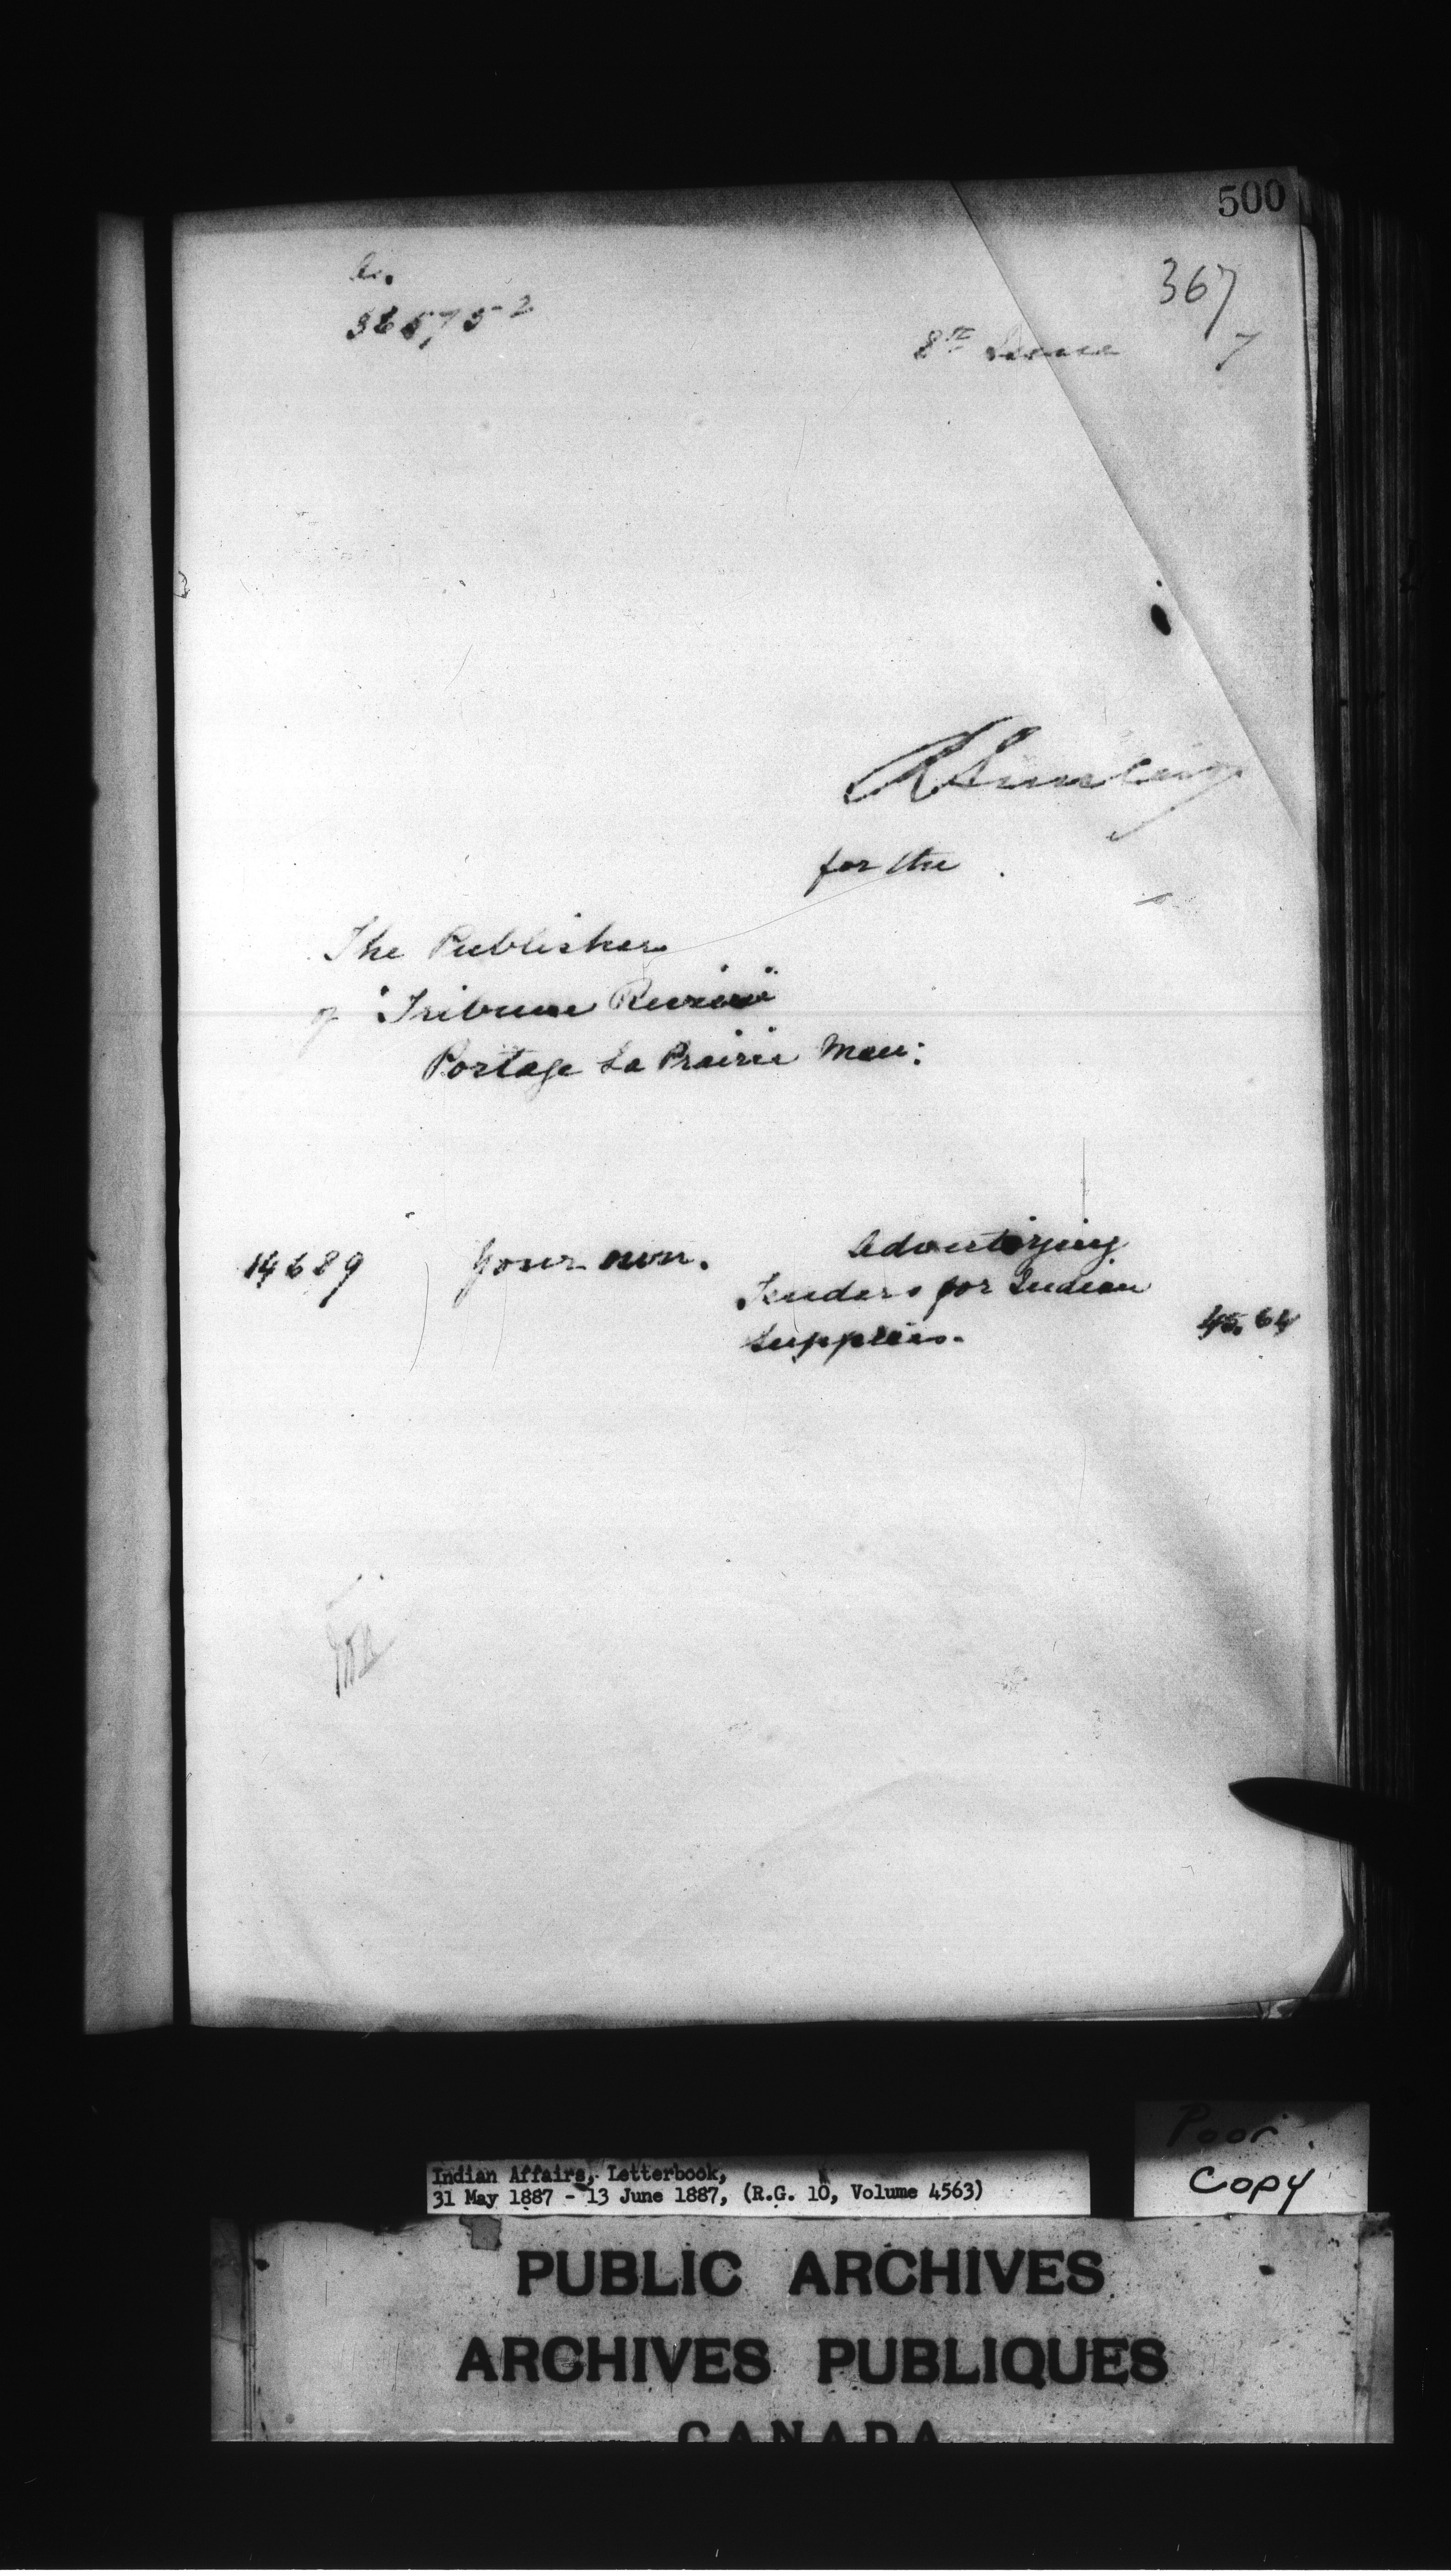 500
367
36575-2
8th June 7
for the
The Publisher
of "Tribune Review"
Portage La Prairie Man:
14689 your own. Advertizing
Tenders for Indian
Supplies. 45.64
Poor
Copy
Indian Affairs, Letterbook,
31 May 1887 - 13 June 1887, (R.G. 10, Volume 4563)
PUBLIC ARCHIVES
ARCHIVES PUBLIQUES
CANADA